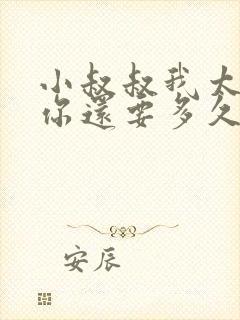 小叔叔我太
你還要多久
安辰